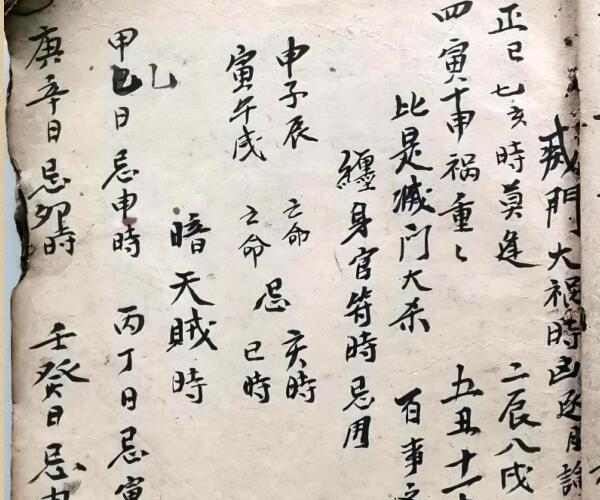 灭門大禍時凶逐月論
正巳七亥時莫逢 二辰八戌
四寅十申禍重〻 五丑十一
比是滅门大杀 百事
纏身官符時忌用
申子辰 亡命 亥時
忌
寅午戌 亡命 巳時
暗天賊時
甲乙日忌申時 丙丁日忌寅
庚辛日忌卯時 壬癸日忌